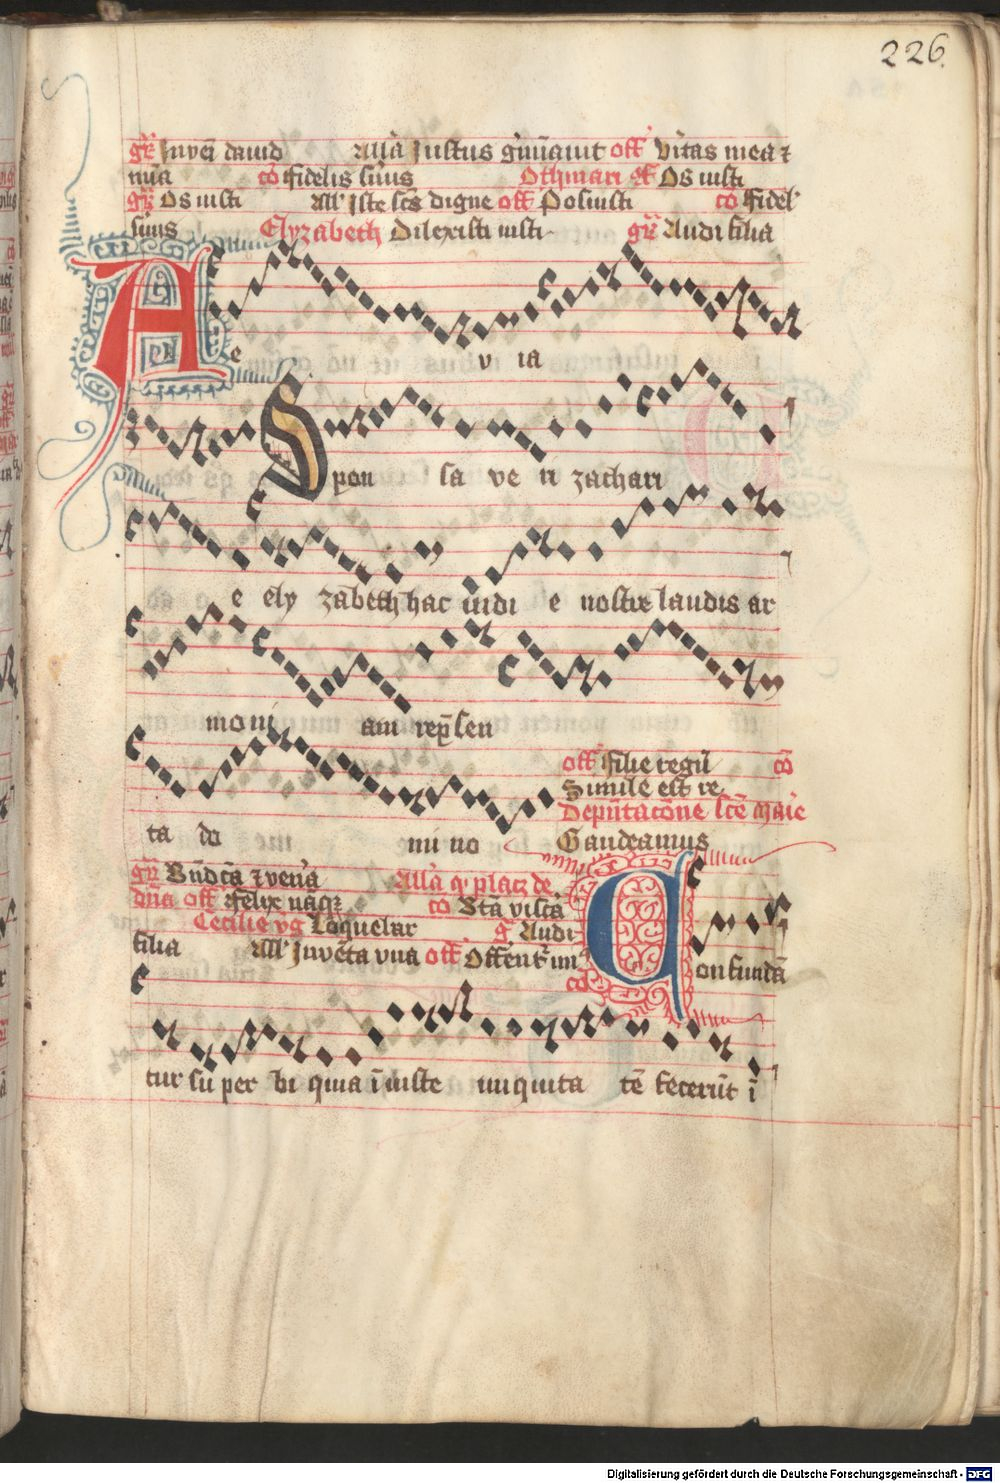 226.
gr̄ Inveni david Alla Iustus gmīavit off Vitas mea ⁊
nua co fidelis suus Othmari gr̄ Os iusti
gr̄ Os iusti All' Iste scs digne off Posuisti co fidel'
suus Elyzabeth Dilexisti iusti gr̄ Audi filia
Ae v ia
Spon sa ve ri zachari
e ely zabeth hac uidi e nostre laudis ar
moni am rep̄sen
off filie regū co
Simile est re
ta do mi no
Depūtacōne scē Marie
Gaudeamus
gr̄ Bndcā ⁊ vena Alla q placz de
dn̄a off felix naq co Btā viscā
Cecilie vg Loquebar gr Audi
filia All' Inventa una off Offent' im
co
Confundā
tur su per bi quia īiuste iniquita tē fecerūt ī
Digitalisierung gefördert durch die Deutsche Forschungsgemeinschaft - DFG